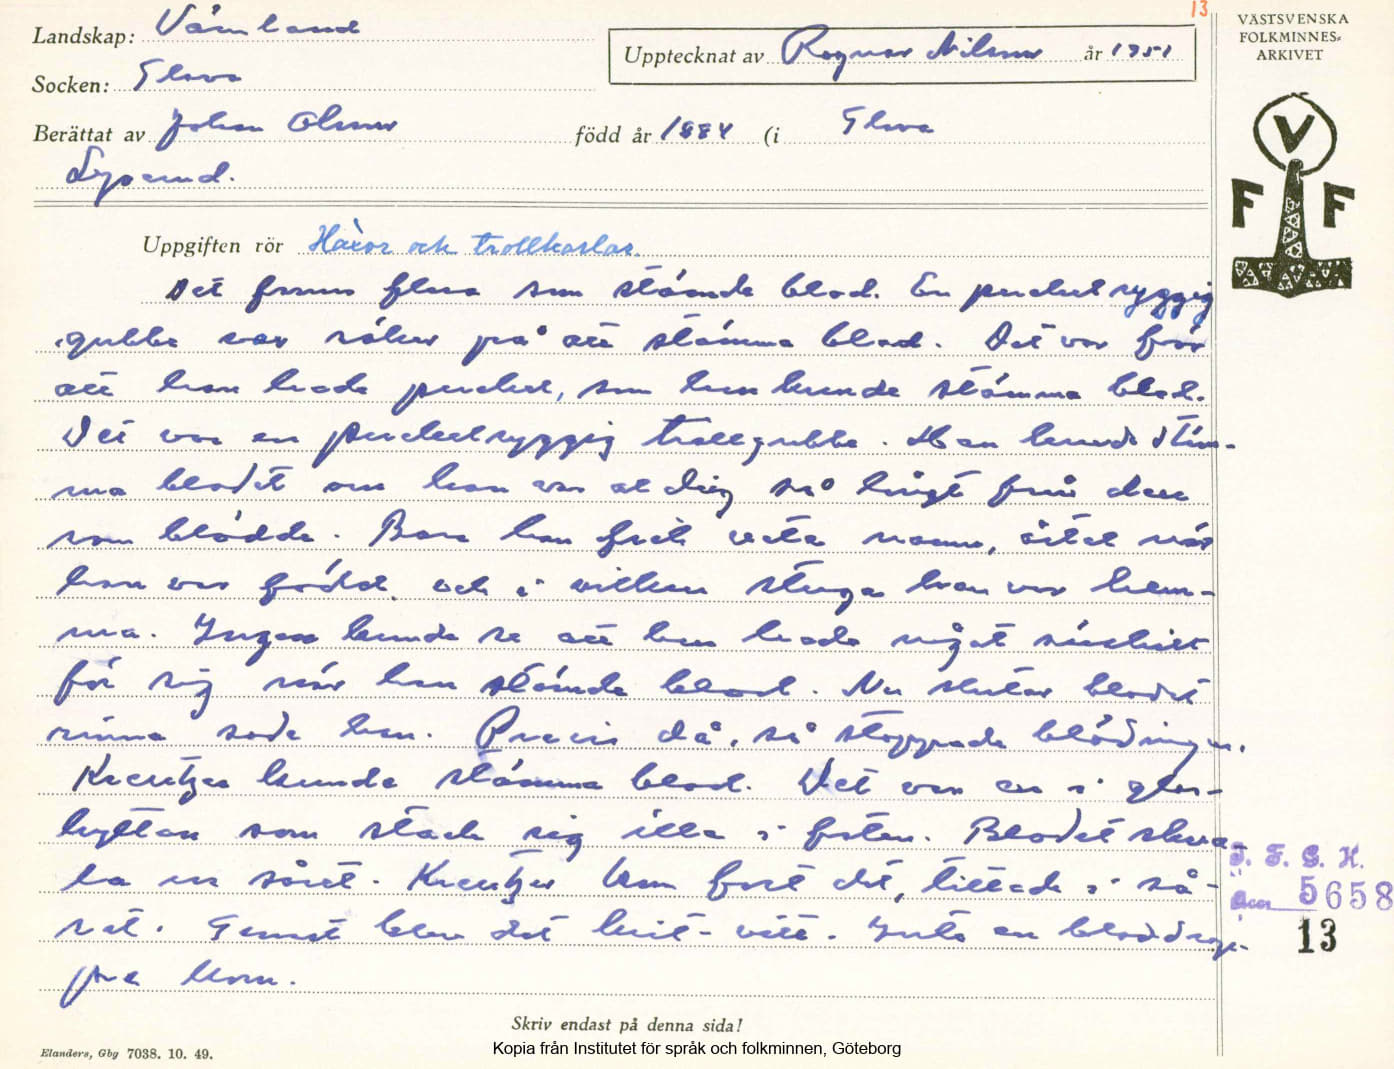 13
Landskap: Värmland
Upptecknat av Ragnar Nilsson år 1951
Socken: Glava
Berättat av Johan Olsson född år 1884 (i Glava
VÄSTSVENSKA
FOLKMINNES-
ARKIVET
V
F F
Uppgiften rör Häxor och trollkarlar.
Det fanns flera som stämde blod. En puckelryggig
gubbe var säker på att stämma blod. Det var för
att han hade puckel, som han kunde stämma blod.
Det var en puckelryggig trollgubbe. Han kunde stäm-
ma blodet om han var aldrig så långt från den
som blödde. Bara han fick veta namn, året när
han var född och i vilken stuga han var hem-
ma. Ingen kunde se att han hade något särskilt
för sig när han stämde blod. Nu slutar blodet
rinna sade han. Precis då, så stoppade blödningen.
Kreutzer kunde stämma blod. Det var en i glas-
hyttan som stack sig illa i foten. Blodet skva-
la ur såret. Kreutzer kom fort dit, tittade i så-
ret. Genast blev det krit-vitt. Inte en bloddrop-
pe kom.
J. F. G. H.
5658
13
Skriv endast på denna sida!
Elanders, Gbg 7038. 10. 49.
Kopia från Institutet för språk och folkminnen, Göteborg